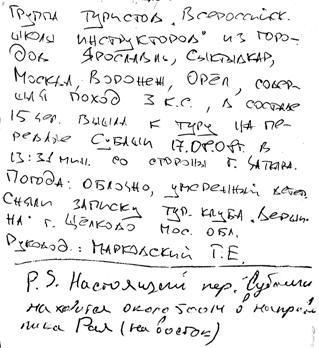 Группа туристов „Всероссийск.
школы инструкторов" из горо-
дов Ярославль, Сыктывкар,
Москва, Воронеж, Орёл, совер-
шая поход 3 к.с., в составе
15 чел. вышла к туру на пе-
ревале Субаши 17.08.08г. в
13:31 мин. со стороны г. Заткиз.
Погода: облачно, умеренный ветер
Сняли записку тур. клуба „Верши-
на" г. Щёлково Мос. обл.
Руковод.: Марковский Г.Е.
P.S. Настоящий пер. Субаши
находится около 500м в направ
пика Рая (на восток)